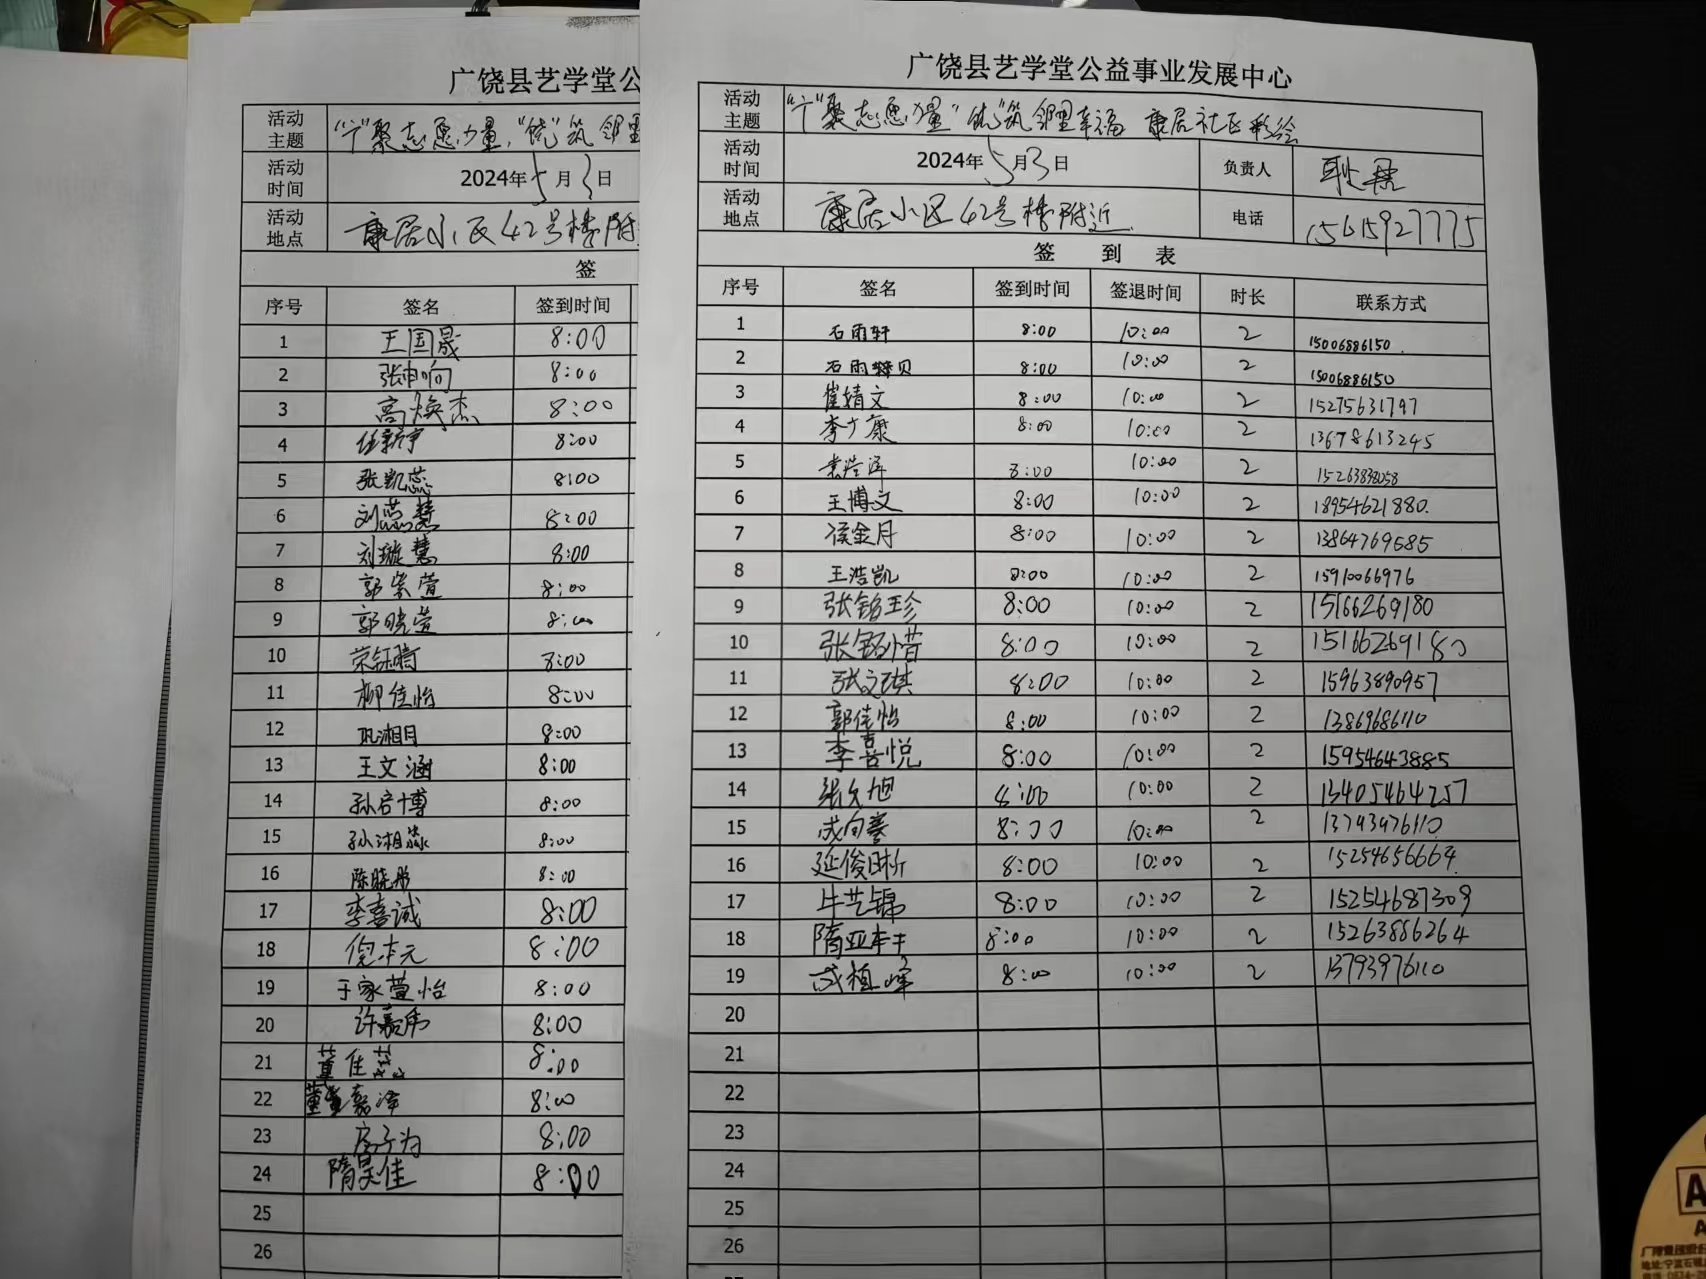 广饶县艺学堂公
活动主题 "宁"聚志愿力量,"饶"筑邻里
活动时间 2024年5月3日
活动地点 康居小区42号楼附
签
序号 签名 签到时间
1 王国晟 8:00
2 张申响 8:00
3 高焕杰 8:00
4 任新宇 8:00
5 张凯蕊 8:00
6 刘蕊慧 8:00
7 刘璇慧 8:00
8 郭紫萱 8:00
9 郭晓萱 8:00
10 荣钰晴 8:00
11 柳佳怡 8:00
12 巩湘月 8:00
13 王文涵 8:00
14 孙启博 8:00
15 孙湘淼 8:00
16 陈晓彤 8:00
17 李嘉诚 8:00
18 倪本元 8:00
19 于家萱怡 8:00
20 许嘉 8:00
21 董佳蕊 8:00
22 董嘉泽 8:00
23 房子为 8:00
24 隋昊佳 8:00
25
26
广饶县艺学堂公益事业发展中心
活动主题 "宁"聚志愿力量"饶"筑邻里幸福 康居社区彩绘
活动时间 2024年5月3日 负责人 耿
活动地点 康居小区42号楼附近 电话 15615927775
签到表
序号 签名 签到时间 签退时间 时长 联系方式
1 石雨轩 8:00 10:00 2 15006886150
2 石雨贝 8:00 10:00 2 15006886150
3 崔婧文 8:00 10:00 2 15275631797
4 李广康 8:00 10:00 2 13678613245
5 浩泽 8:00 10:00 2 15263898058
6 王博文 8:00 10:00 2 18954621880
7 侯金月 8:00 10:00 2 13864769685
8 王浩凯 8:00 10:00 2 15910066976
9 张铭珍 8:00 10:00 2 15166269180
10 张铭惜 8:00 10:00 2 15166269180
11 张文琪 8:00 10:00 2 15963890957
12 郭佳怡 8:00 10:00 2 13869686110
13 李喜悦 8:00 10:00 2 15954643885
14 张久旭 8:00 10:00 2 13405464257
15 成向善 8:00 10:00 2 13793976110
16 延俊晰 8:00 10:00 2 15254656664
17 牛艺锦 8:00 10:00 2 15254687309
18 隋亚轩 8:00 10:00 2 15263886264
19 成植峰 8:00 10:00 2 13793976110
20
21
22
23
24
25
26